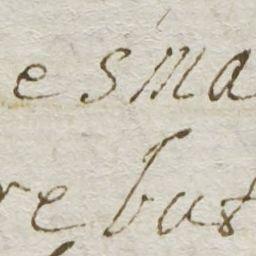 esma
rebut